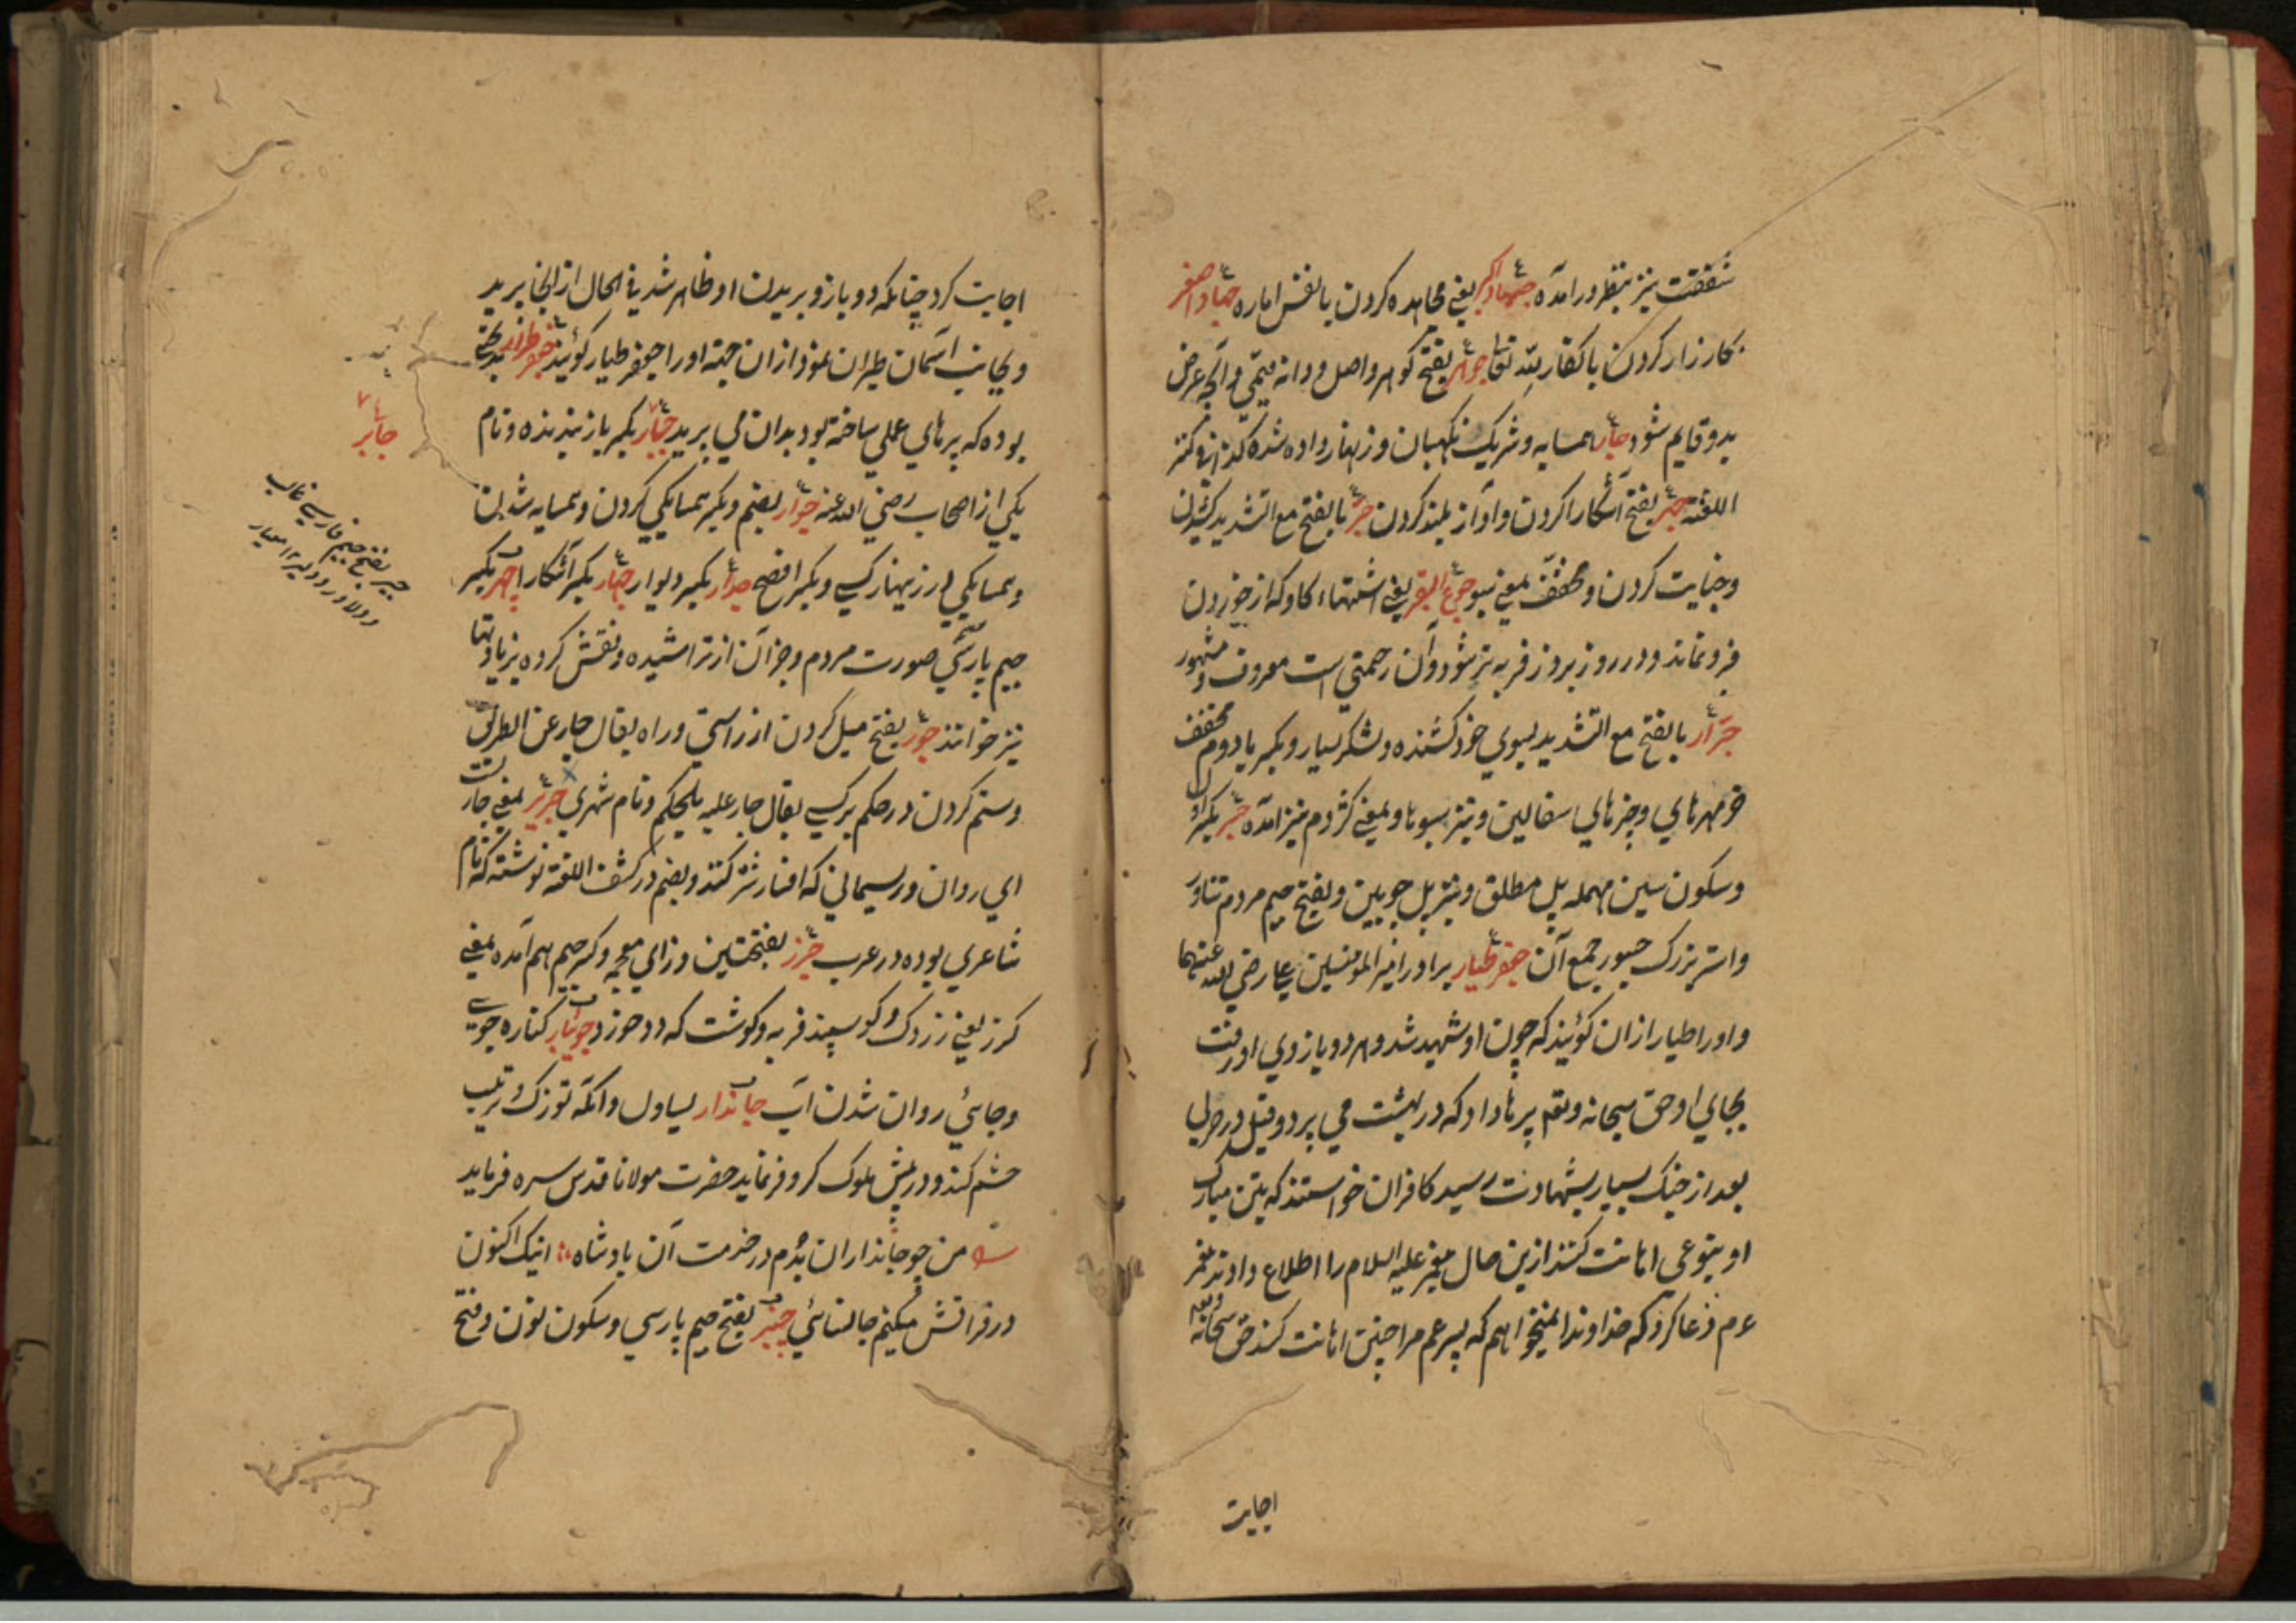 شفقت نیز بنظر درآمده جهاد اکبر یعنی مجاهده کردن با نفس اماره جهاد اصغر
کارزار کردن با کفار لله تعا جوهر بفتح گوهر و اصل و دانه قیمتی و آنچه عرض
بدو قایم شود جار همسایه و شریک نگهبان و زنهار داده شده کذا فی کنز
اللغته جهر بفتح آشکارا کردن و آواز بلند کردن جر بالفتح مع التشدید کشیدن
و جنایت کردن و مخفف بمعنی سبو جوع البقر یعنی اشتهاء کاو که از خوردن
فرو نماند و در روز بروز فربه تر شود و آن زحمتی است معروف و مشهور
جرار بالفتح مع التشدید بسوی خود کشنده و لشکر بسیار و بکسر یا دوم مخفف
خرمهرهای و چیزهای سفالین و نیز سبوها و بمعنی کژدم نیز آمده جسر بکسر اول
و سکون سین مهمله پل مطلق و نیز پل چوبین و بفتح جیم مردم تناور
و استر بزرک جسور جمع آن جعفر طیار برادر امیر المومنین علی رضی الله عنهما
و او را طیار ازان کویند که چون او شهید شد و هر دو بازوی او رفت
بجای او حق سبحانه و تعه پرها داد که در بهشت می پرد و قیل در حربی
بعد از جنک بسیار بشهادت رسید کافران خواستند که بتن مبارک
او بنوعی اهانت کنند ازین حال پیغمبر علیه السلام را اطلاع دادند پیغمبر
ءم دعا کرد که خداوندا نمیخواهم که پسر عم مرا چنین اهانت کنند حق سبحانه و تعه
اجابت
اجابت کرد چنانکه دو بازو بریدن او ظاهر شد فی الحال از انجا پرید
و بجانب آسمان طیران نمود ازان جهة او را جعفر طیار کویند جعفر طراز
بوده که پرهای عملی ساخته بود بدان می پرید جبار بکسر باز بند بنده و نام
یکی از اصحاب رضی الله عنه جوار بضم و بکسر همسایکی کردن و همسایه شدن
و همسایکی و در زینهار کسی و بکسر افصح جدار بکسر دیوار جهار بکسر آشکارا چهر بکسر
جیم پارسی صورت مردم و جز آن از تراشیده و نقش کرده
نیز خوانند جور بفتح میل کردن از راستی و راه یقال جار عن الطریق
و ستم کردن در حکم بر کسی یقال جار علیه بالحکم و نام شهری جریر بمعنی جار است
ای روان و ریسمانی که افسار شتر کنند و بضم در کشف اللغة نوشته که نام
شاعری بوده در عرب جزر بفتحتین و زای معجمه و کسر جیم هم آمده بمعنی
کزر یعنی زردک و کوسپند فربه و کوشت که دد خورد جویبار کناره جوی
و جائی روان شدن آب جاندار یساول و انکه توزک و ترتیب
حشم کند و در پیش ملوک کر و فر نماید حضرت مولانا قدس سره فرماید
من چو جانداران بدم در خدمت آن بادشاه اینک اکنون
در فراقش میکنم جانسائی چنبر بفتح جیم پارسی و سکون نون و فتح
جابر
چیر بفتح جیم فارسی غالب
و دلاور